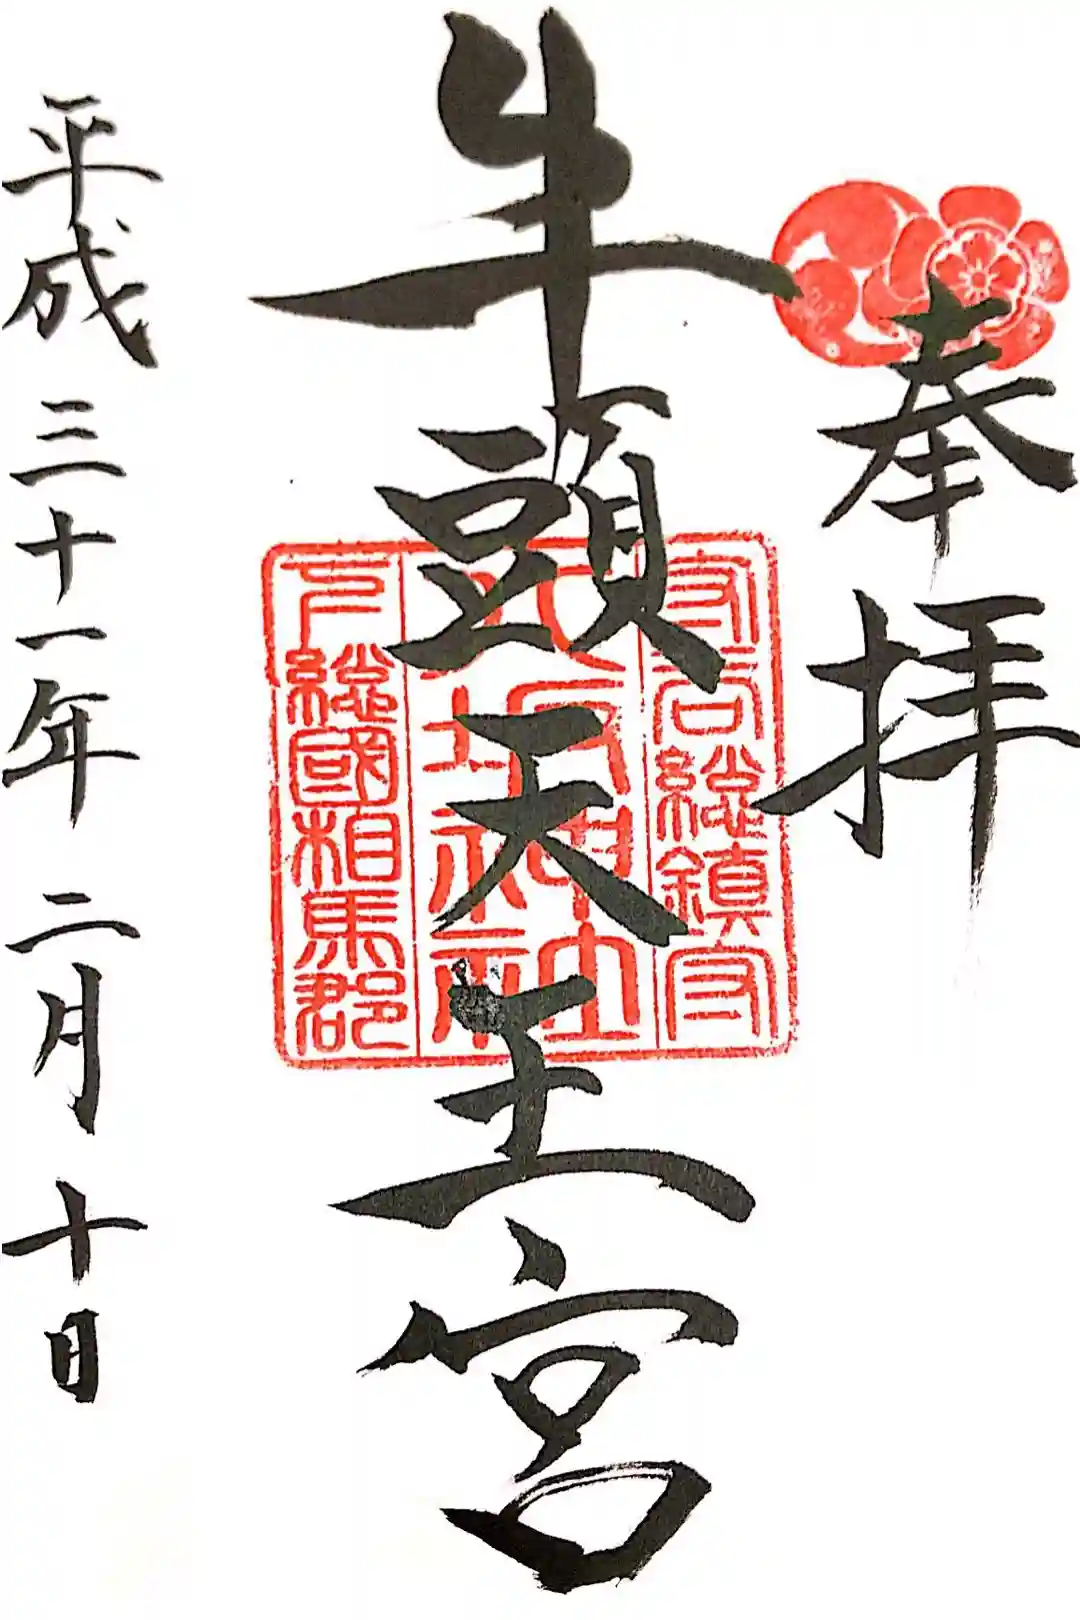 奉拝
牛頭天王宮
守谷総鎮守
八坂神社
下総國相馬郡
平成三十一年二月十日